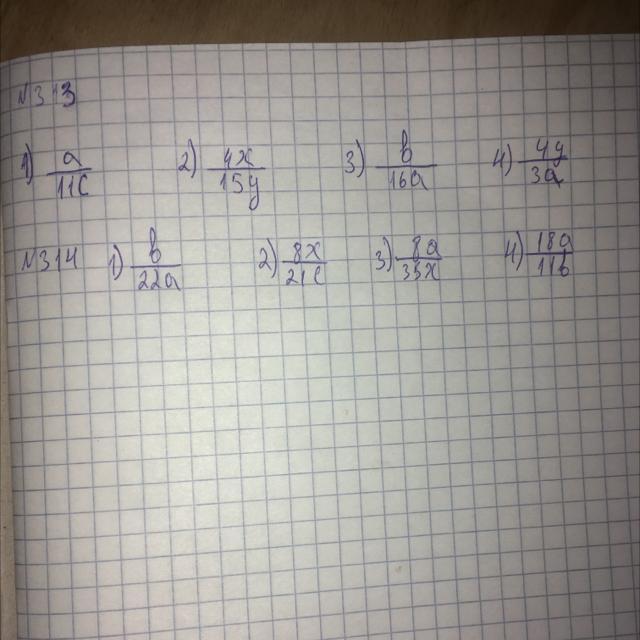 №313
1) a/11c 2) 4x/15y 3) b/16a 4) 4y/3a
№314 1) b/22a 2) 8x/21c 3) 8a/35x 4) 18a/11b